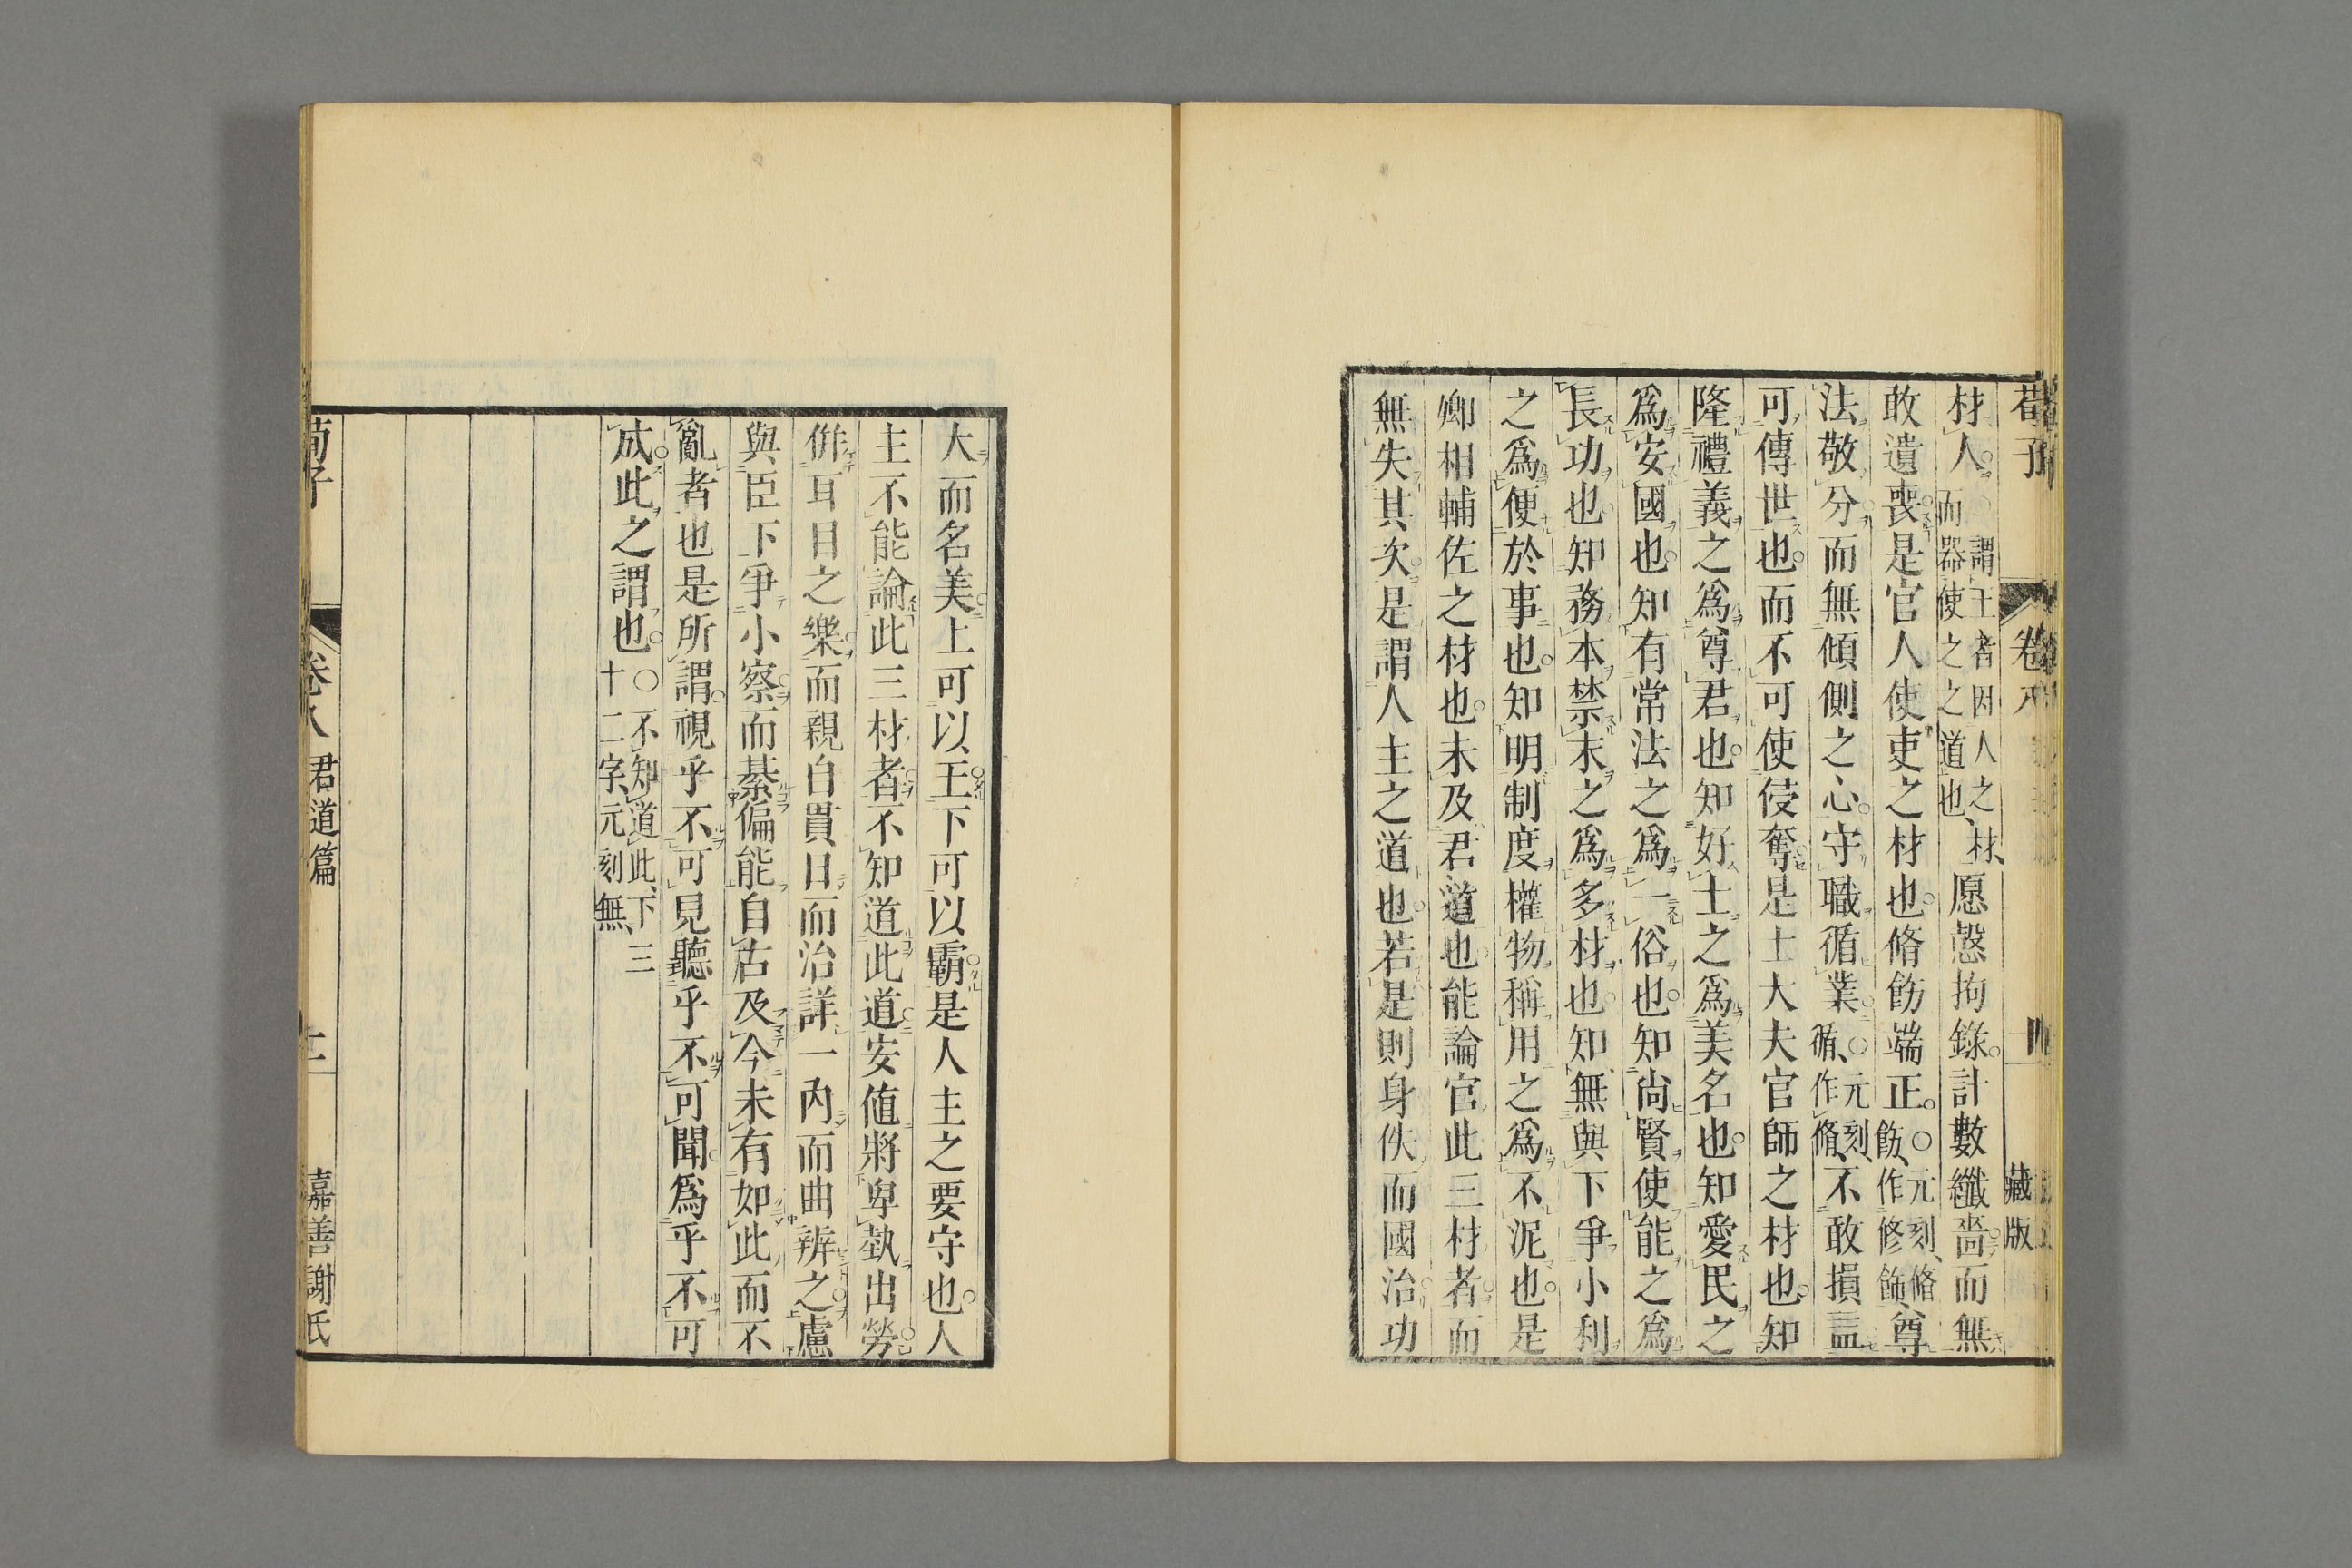 荀子 卷八 藏版
材人 謂王者因人之材而器使之之道也 愿愨拘錄計數纖嗇而無
敢遺喪是官人使吏之材也脩飭端正 ○元刻脩飭作修飾 尊
法敬分而無傾側之心守職循業 ○元刻循作脩 不敢損益
可傳世也而不可使侵奪是士大夫官師之材也知
隆禮義之爲尊君也知好士之爲美名也知愛民之
爲安國也知有常法之爲一俗也知尚賢使能之爲
長功也知務本禁末之爲多材也知無與下爭小利
之爲便於事也知明制度權物稱用之爲不泥也是
卿相輔佐之材也未及君道也能論官此三材者而
無失其次是謂人主之道也若是則身佚而國治功
大而名美上可以王下可以霸是人主之要守也人
主不能論此三材者不知道此道安値將卑埶出勞
倂耳目之樂而親自貫日而治詳一內而曲辨之慮
與臣下爭小察而綦偏能自古及今未有如此而不
亂者也是所謂視乎不可見聽乎不可聞爲乎不可
成此之謂也 ○不知道此下三十二字元刻無
荀子 卷八 君道篇 十二 嘉善謝氏